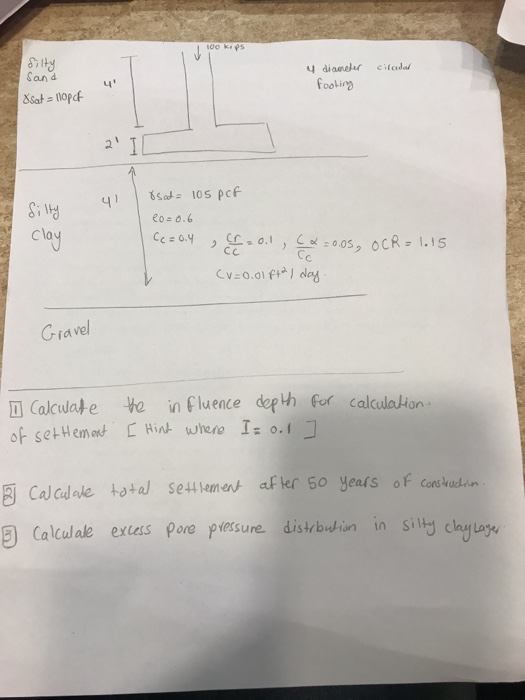 100 kips
Silty
Sand
γsat = 110pcf
4'
4 diameter circular
footing
2'
Silty
clay
4'
γsat = 105 pcf
e0 = 0.6
Cc = 0.4 , Cr/Cc = 0.1 , Cα/Cc = 0.05, OCR = 1.15
Cv = 0.01 ft²/ day.
Gravel
1 Calculate the influence depth for calculation.
of settlement [ Hint where I = 0.1 ]
2 Calculate total settlement after 50 years of construction.
3 Calculate excess pore pressure distrbution in silty clay layer